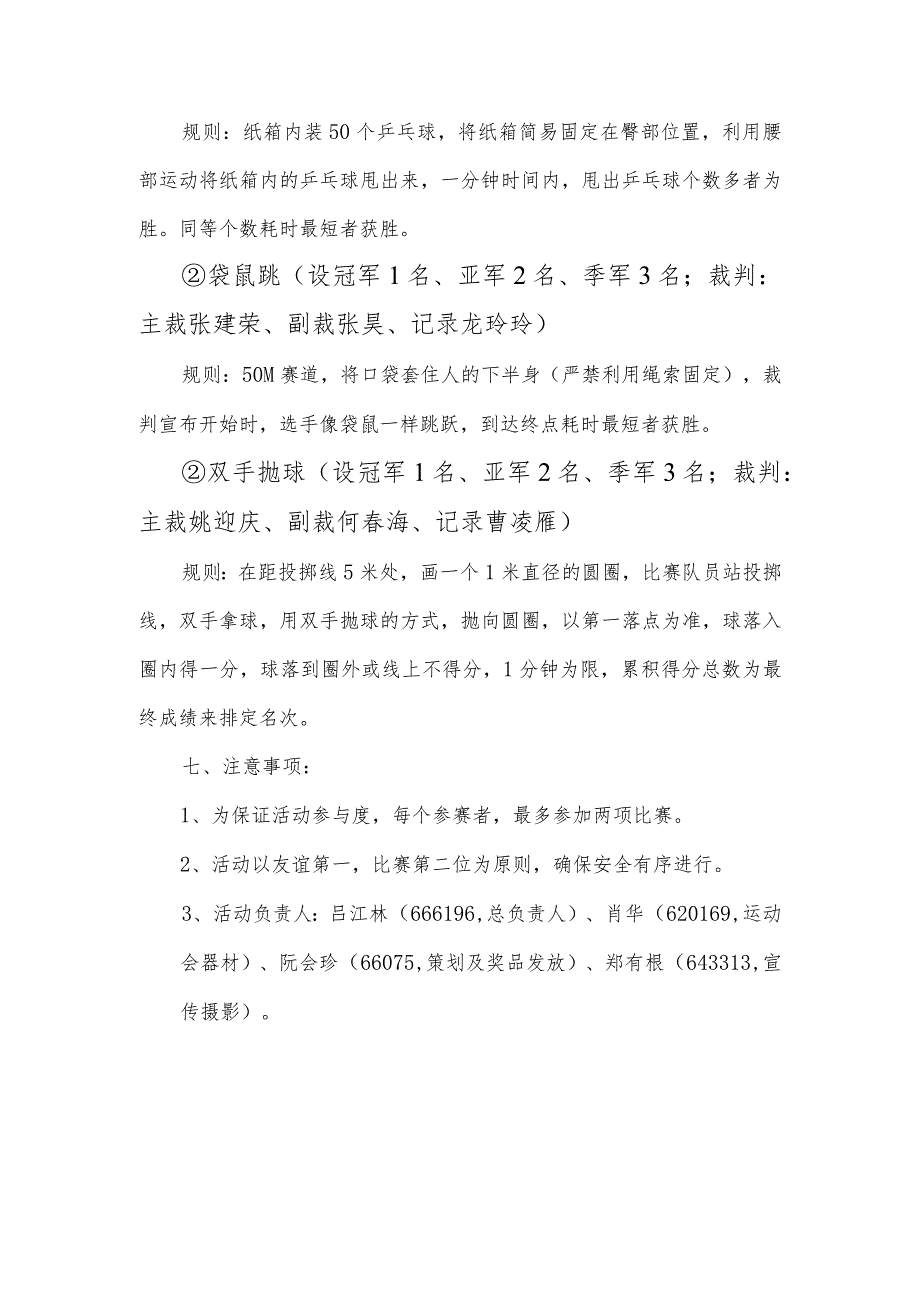 规则：纸箱内装50个乒乓球，将纸箱简易固定在臀部位置，利用腰
部运动将纸箱内的乒乓球甩出来，一分钟时间内，甩出乒乓球个数多者为
胜。同等个数耗时最短者获胜。
②袋鼠跳（设冠军1名、亚军2名、季军3名；裁判：
主裁张建荣、副裁张昊、记录龙玲玲）
规则：50M赛道，将口袋套住人的下半身（严禁利用绳索固定），裁
判宣布开始时，选手像袋鼠一样跳跃，到达终点耗时最短者获胜。
②双手抛球（设冠军1名、亚军2名、季军3名；裁判：
主裁姚迎庆、副裁何春海、记录曹凌雁）
规则：在距投掷线5米处，画一个1米直径的圆圈，比赛队员站投掷
线，双手拿球，用双手抛球的方式，抛向圆圈，以第一落点为准，球落入
圈内得一分，球落到圈外或线上不得分，1分钟为限，累积得分总数为最
终成绩来排定名次。
七、注意事项：
1、为保证活动参与度，每个参赛者，最多参加两项比赛。
2、活动以友谊第一，比赛第二位为原则，确保安全有序进行。
3、活动负责人：吕江林（666196,总负责人）、肖华（620169,运动
会器材）、阮会珍（66075,策划及奖品发放）、郑有根（643313,宣
传摄影）。